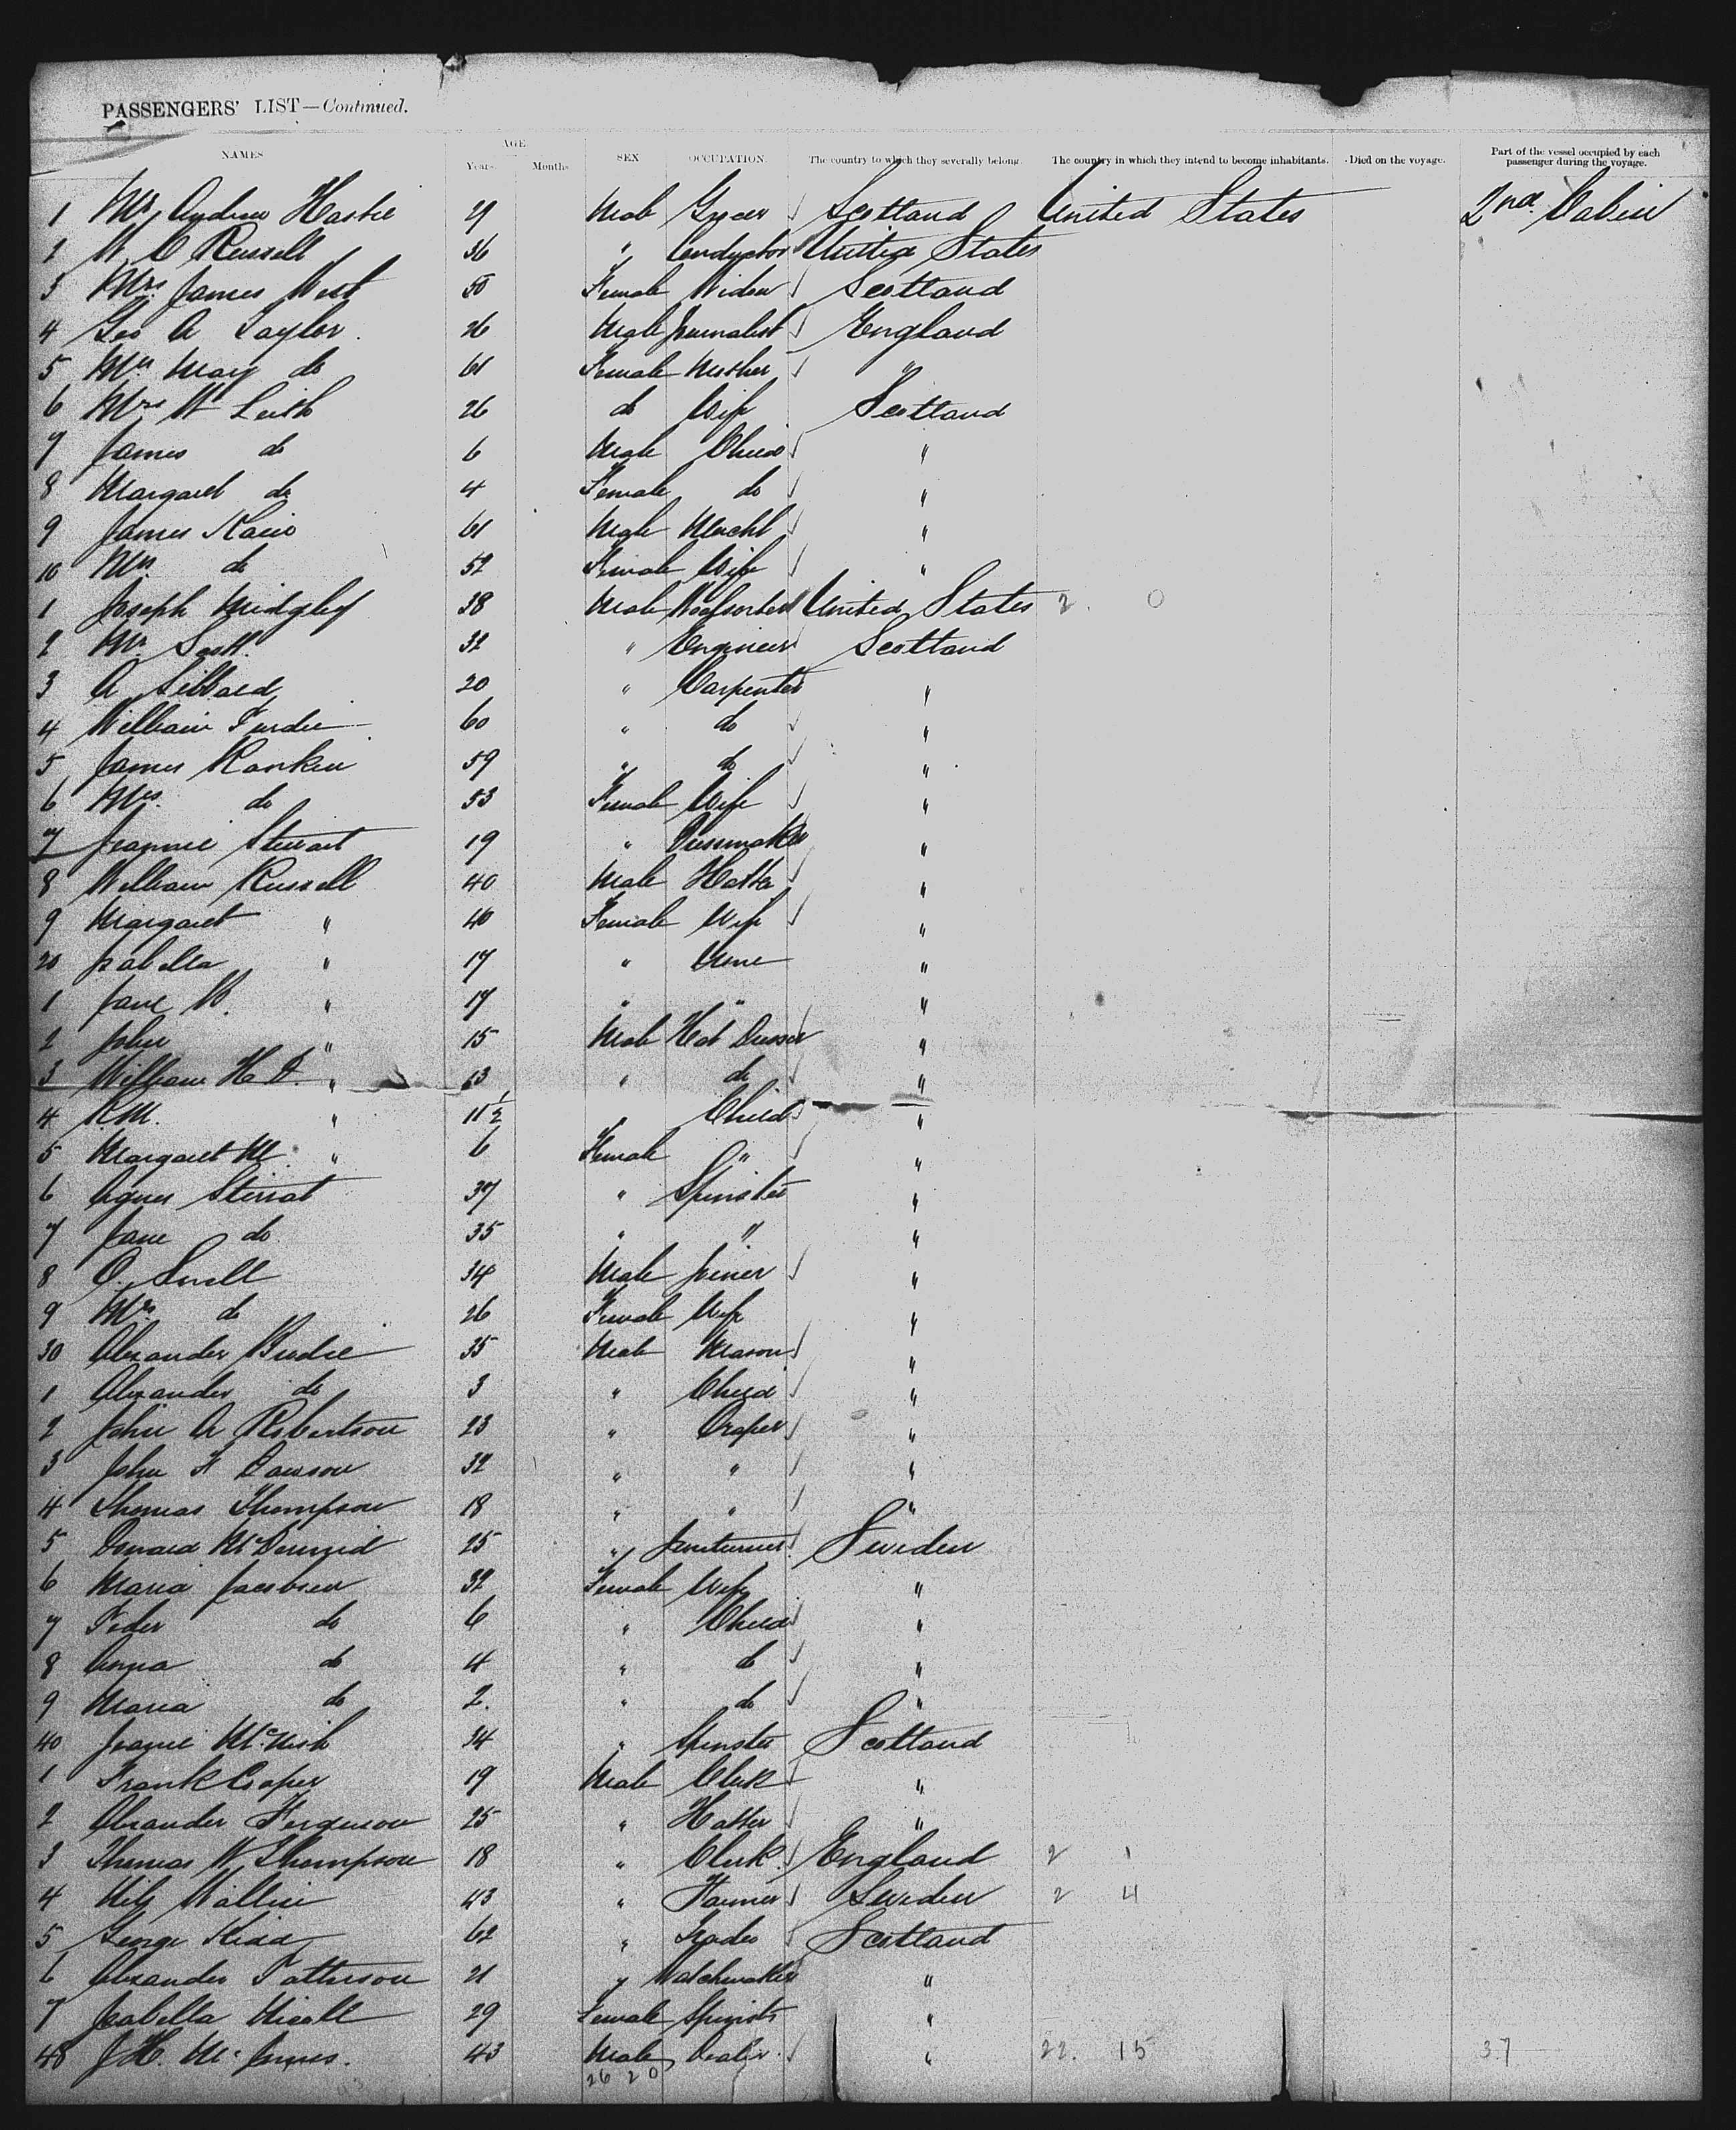 PASSENGERS' LIST—Continued.
NAMES AGE Years Months SEX OCCUPATION. The country to which they severally belong. The country in which they intend to become inhabitants. Died on the voyage. Part of the vessel occupied by each passenger during the voyage.
1 Mr Andrew Hastie 29 Male Grocer Scotland United States 2nd Cabin
2 W C Russell 36 " Conductor United States
3 Mrs James West 50 Female Widow Scotland
4 Geo A Taylor 26 Male Journalist England
5 Mrs Mary do 61 Female Mother "
6 Mrs W Leith 26 do Wife Scotland
7 James do 6 Male Child "
8 Margaret do 4 Female do "
9 James 61 Male Mercht "
10 Mrs do 52 Female Wife "
1 Joseph Midgley 38 Male Woolsorter United States 2. 0
2 Mr Scott 32 " Engineer Scotland
3 A Sibbald 20 " Carpenter "
4 William Purdie 60 " do "
5 James Rankin 59 " do "
6 Mrs. do 53 Female Wife "
7 Jeannie Stewart 19 " Dressmaker "
8 William Russell 40 Male Hatter "
9 Margaret " 40 Female Wife "
20 Isabella " 17 " None "
1 Jane B. " 17 " " "
2 John " 15 Male Hat Dresser "
3 William H. " 13 " do "
4 R.M. " 11½ Child "
5 Margaret M " 6 Female " "
6 Agnes Stirrat 37 " Spinster "
7 Jane do 35 " " "
8 O. Snell 34 Male Joiner "
9 Mrs do 26 Female Wife "
30 Alexander Brodie 35 Male Mason "
1 Alexander do 3 " Child "
2 John A Robertson 23 " Draper "
3 John F Dawson 32 " " "
4 Thomas Thompson 18 " " "
5 Donald McDermid 25 " Sweden
6 Maria Jacobsen 32 Female Wife "
7 Peder do 6 " Child "
8 Anna do 4 " do "
9 Maria do 2. " do "
40 Jeanie McNish 34 " Spinster Scotland
1 Frank Cooper 19 Male Clerk "
2 Alexander Ferguson 25 " Hatter "
3 Thomas W Thompson 18 " Clerk England 2 1
4 Nils Wallin 43 " Farmer Sweden 2 4
5 George Kidd 62 " Scotland
6 Alexander Patterson 21 " Watchmaker "
7 Isabella Nicoll 29 Female Spinster "
48 J.H. McInnes. 43 Male Dealer. " 22. 15 37
26 20